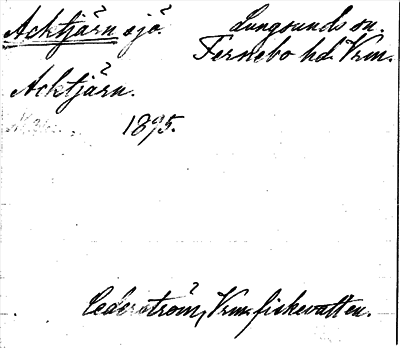 Acktjärn sjö.
Lungsunds sn.
Fernebo hd. Vrm.
Acktjärn.
1895.
Cederström, Vrm. fiskevatten.